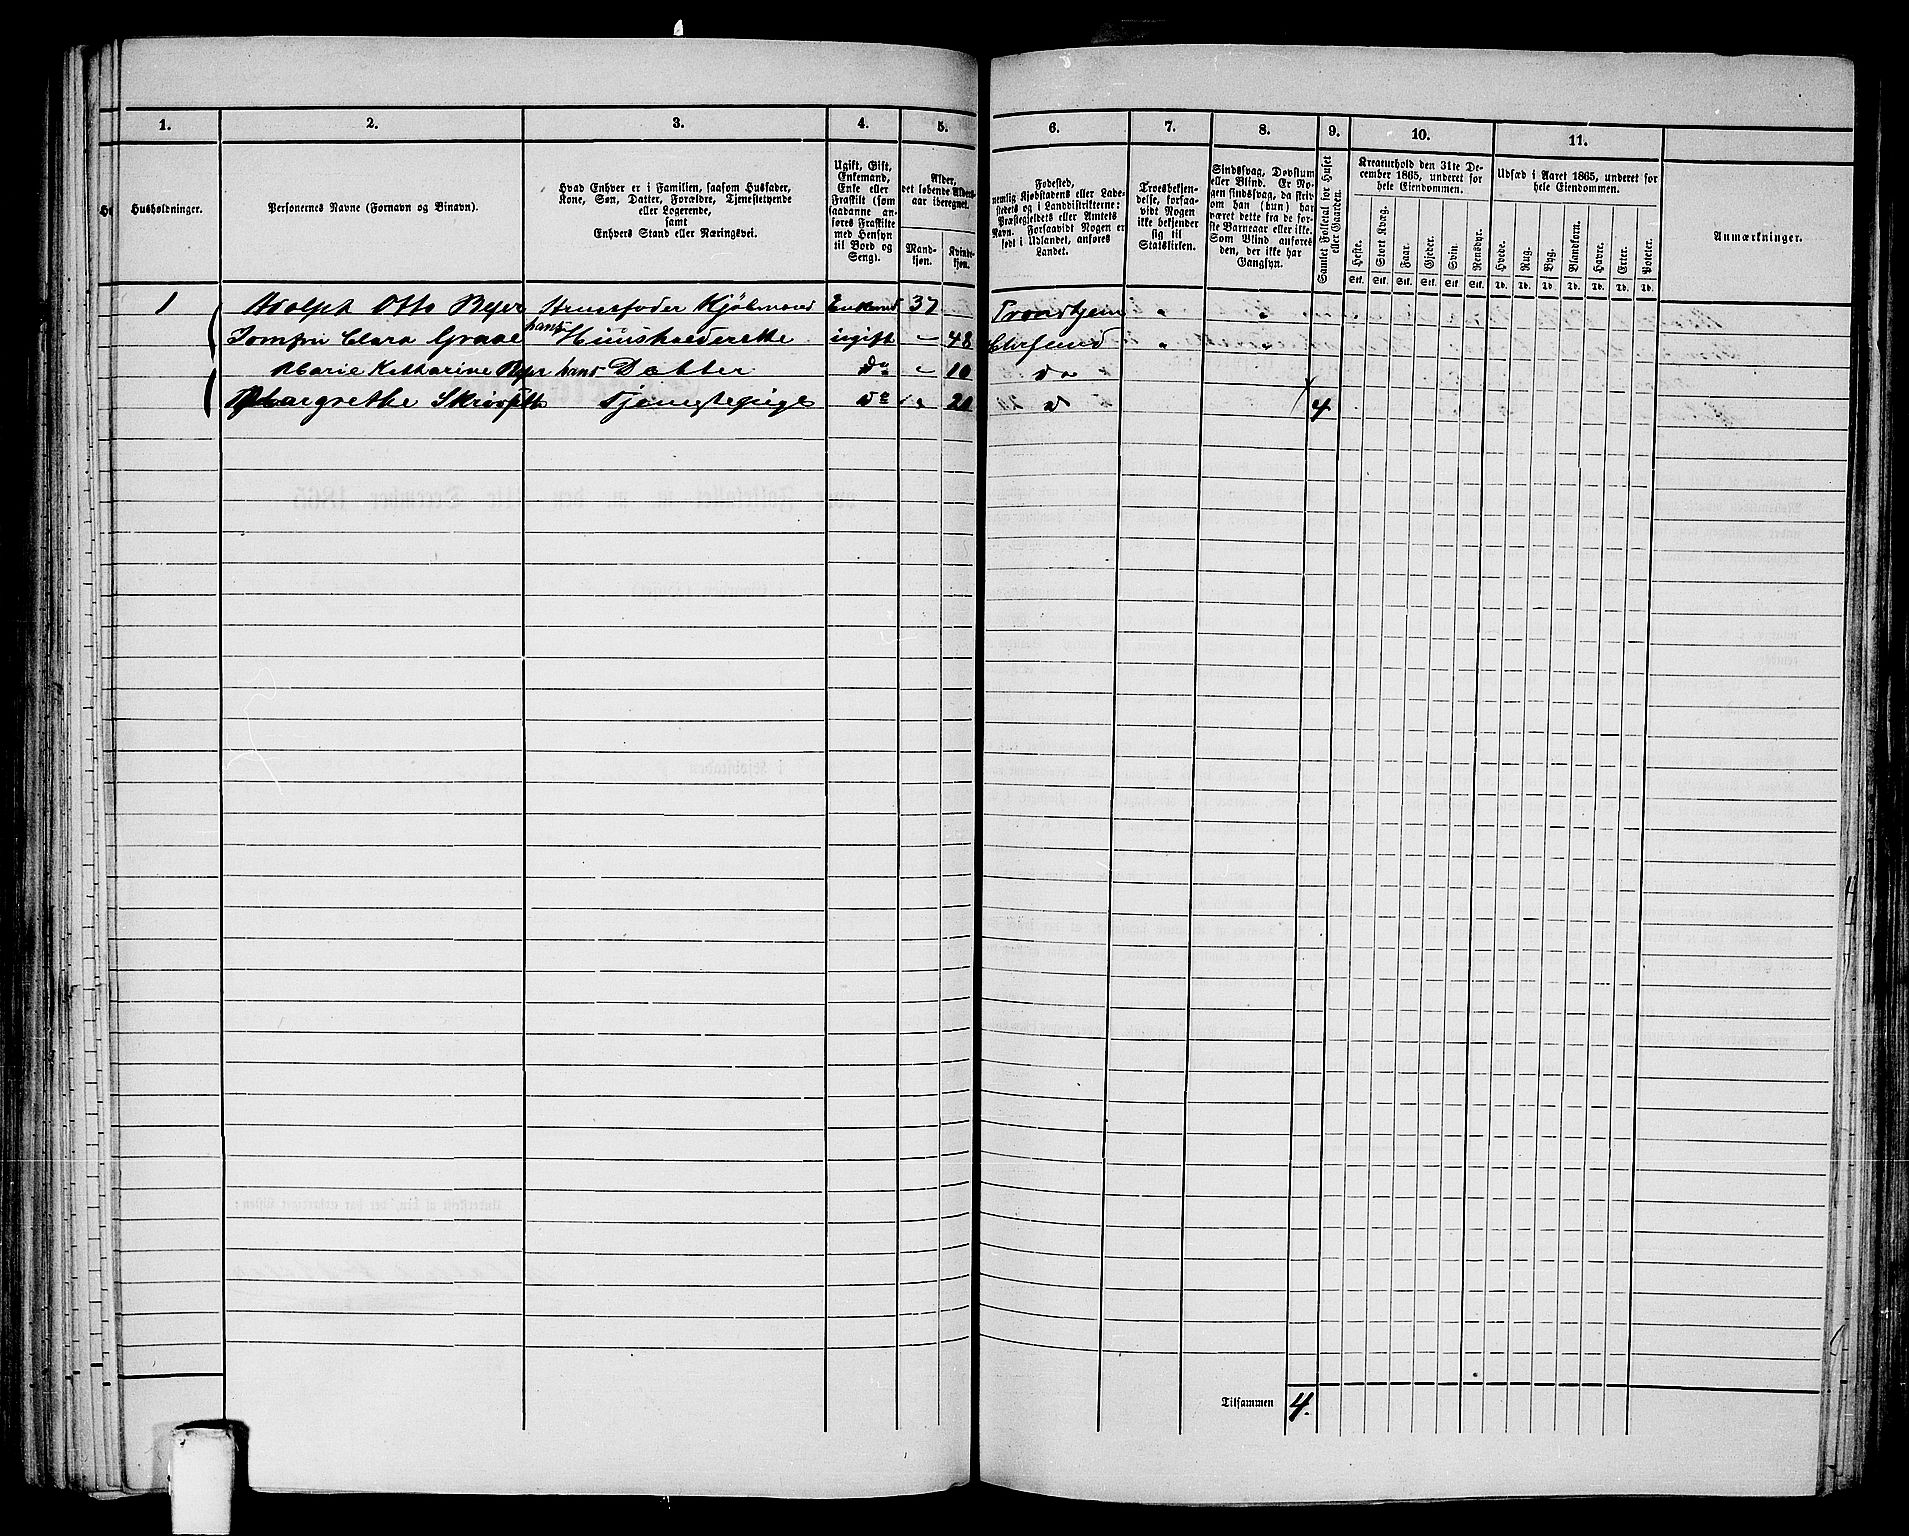 1. 2. 3. 4. 5. 6. 7. 8. 9. 10. 11.
Husholdninger.
Personernes Navne (Fornavn og Binavn).
Hvad Enhver er i Familien, saasom Husfader,
Kone, Søn, Datter, Forældre, Tjenestetyende
eller Logerende,
samt
Enhvers Stand eller Næringsvei.
Ugift, Gift,
Enkemand,
Enke eller
Fraskilt (som
saadanne an-
føres Fraskilte
med Hensyn
til Bord og
Seng).
Alder,
det løbende Alders-
aar iberegnet.
Mand-
kjøn.
Kvinde-
kjøn.
Fødested,
nemlig Kjøbstadens eller Lade-
stedets og i Landdistrikterne:
Præstegjeldets eller Amtets
Navn. Forsaavidt Nogen er
født i Udlandet, anføres
Landet.
Troesbekjen-
delse, forsaa-
vidt Nogen
ikke bekjender
sig til
Statskirken.
Sindssvag, Døvstum
eller Blind. Er No-
gen sindssvag, da skriv
om han (hun) har
været dette fra de før-
ste Barneaar eller ikke.
Som Blind anføres
den, der ikke har
Gangsyn.
Samlet Folketal for Huset
eller Gaarden.
Kreaturhold den 31te De-
cember 1865, underet for
hele Eiendommen.
Heste. Stort Kvæg. Faar. Gjeder. Svin. Rensdyr.
Stk. Stk. Stk. Stk. Stk. Stk.
Udsæd i Aaret 1865, underet for
hele Eiendommen.
Hvede. Rug. Byg. Blandkorn. Havre. Erter. Poteter.
Td. Td. Td. Td. Td. Td. Td.
Anmærkninger.
1 Adolph Otto Beyer Huusfader Kjøbmand Enkemd 37 Trondhjem " "
Jomfru Clara Graae hans Huusholderske ugift " 48 " "
Marie Katharine Beyer hans Datter do " 10 do
Margrethe Tjenestepige do " 20 do 4
Tilsammen 4.